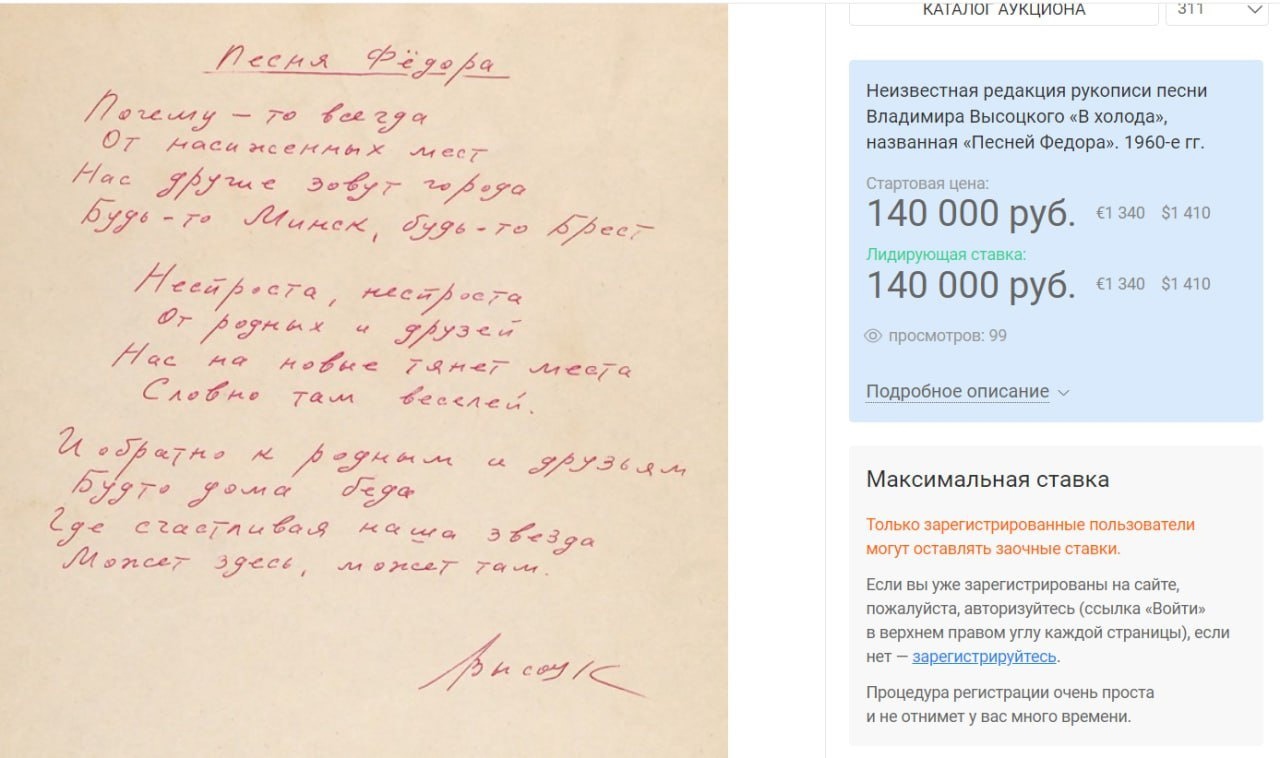 Песня Фёдора
Почему-то всегда
От насиженных мест
Нас другие зовут города
Будь-то Минск, будь-то Брест
Неспроста, неспроста
От родных и друзей
Нас на новые тянет места
Словно там веселей.
И обратно к родным и друзьям
Будто дома беда
Где счастливая наша звезда
Может здесь, может там.
Высоцк
КАТАЛОГ АУКЦИОНА
311
Неизвестная редакция рукописи песни
Владимира Высоцкого «В холода»,
названная «Песней Федора». 1960-е гг.
Стартовая цена:
140 000 руб. €1 340 $1 410
Лидирующая ставка:
140 000 руб. €1 340 $1 410
просмотров: 99
Подробное описание
Максимальная ставка
Только зарегистрированные пользователи
могут оставлять заочные ставки.
Если вы уже зарегистрированы на сайте,
пожалуйста, авторизуйтесь (ссылка «Войти»
в верхнем правом углу каждой страницы), если
нет — зарегистрируйтесь.
Процедура регистрации очень проста
и не отнимет у вас много времени.